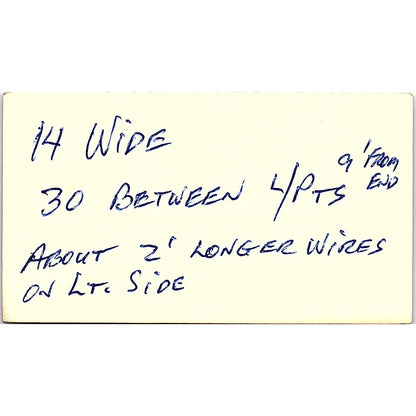 14 WiDE
30 BETWEEN 4/PTS 9' FROM END
ABOUT 2' LONGER WiRES
ON LT. SiDE